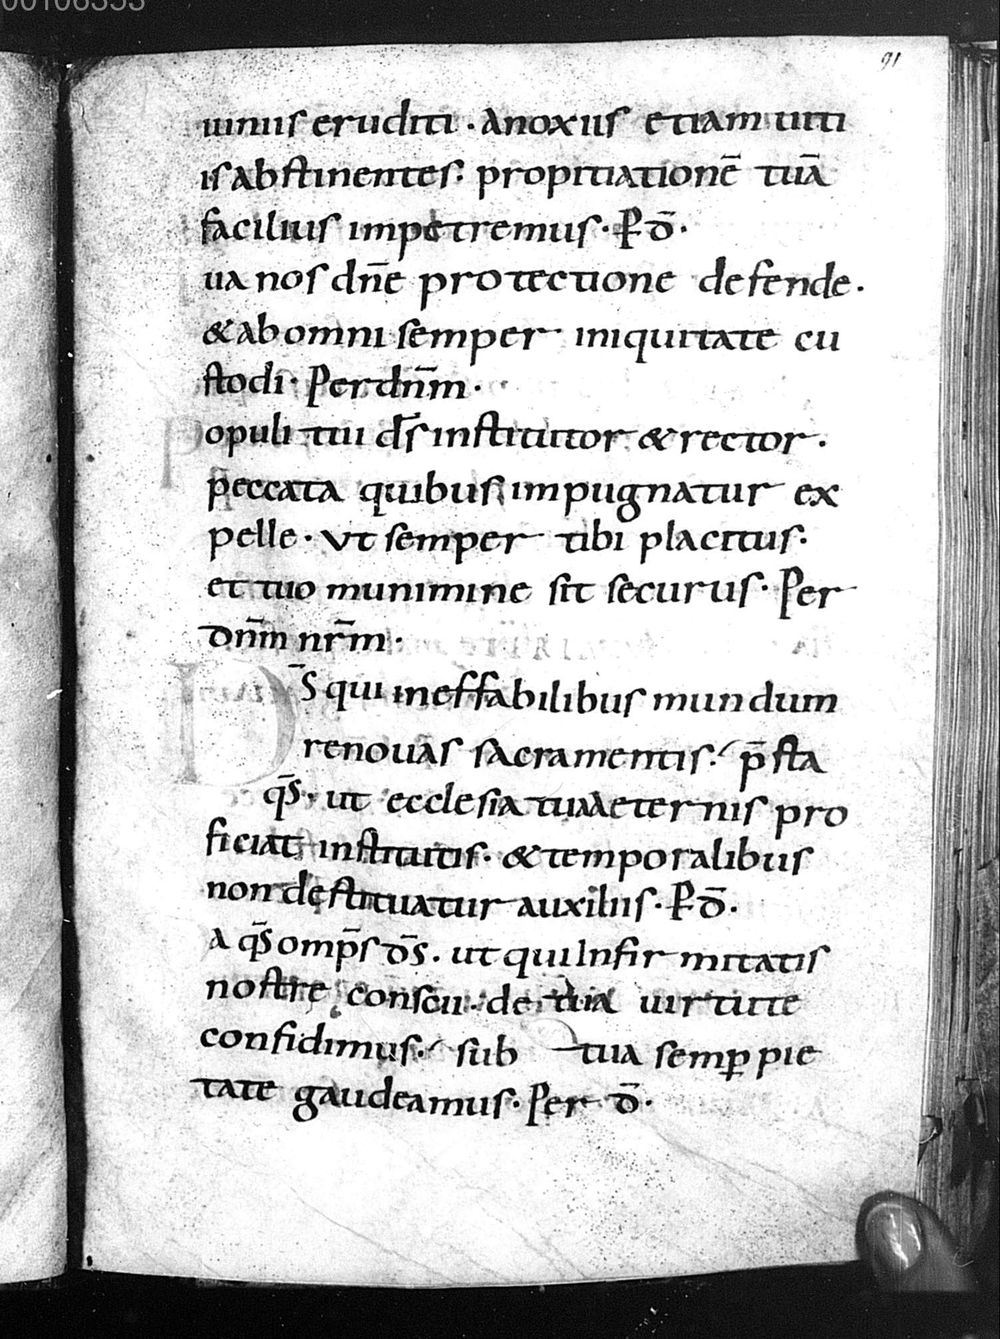 00106353
91
iuniis eruditi · A noxiis etiam uiti
is abstinentes : propitiationē tuā
facilius impetremus · P̄ d̄ ·
ua nos dn̄e protectione defende ·
& ab omni semper iniquitate cu
stodi · Per dn̄m ·
Populi tui d̄s institutor & rector ·
peccata quibus impugnatur ex
pelle · ut semper tibi placitus :
et tuo munimine sit securus · Per
dn̄m nr̄m ·
D̄s qui ineffabilibus mundum
renouas sacramentis : p̄sta
qs̄ · ut ecclesia tua aeternis pro
ficiat institutis · & temporalibus
non destituatur auxiliis · P̄ d̄ ·
A qs̄ omp̄s d̄s · ut qui Infirmitatis
nostre conscii · de tua uirtute
confidimus · sub tua semꝑ pie
tate gaudeamus · Per d̄ ·